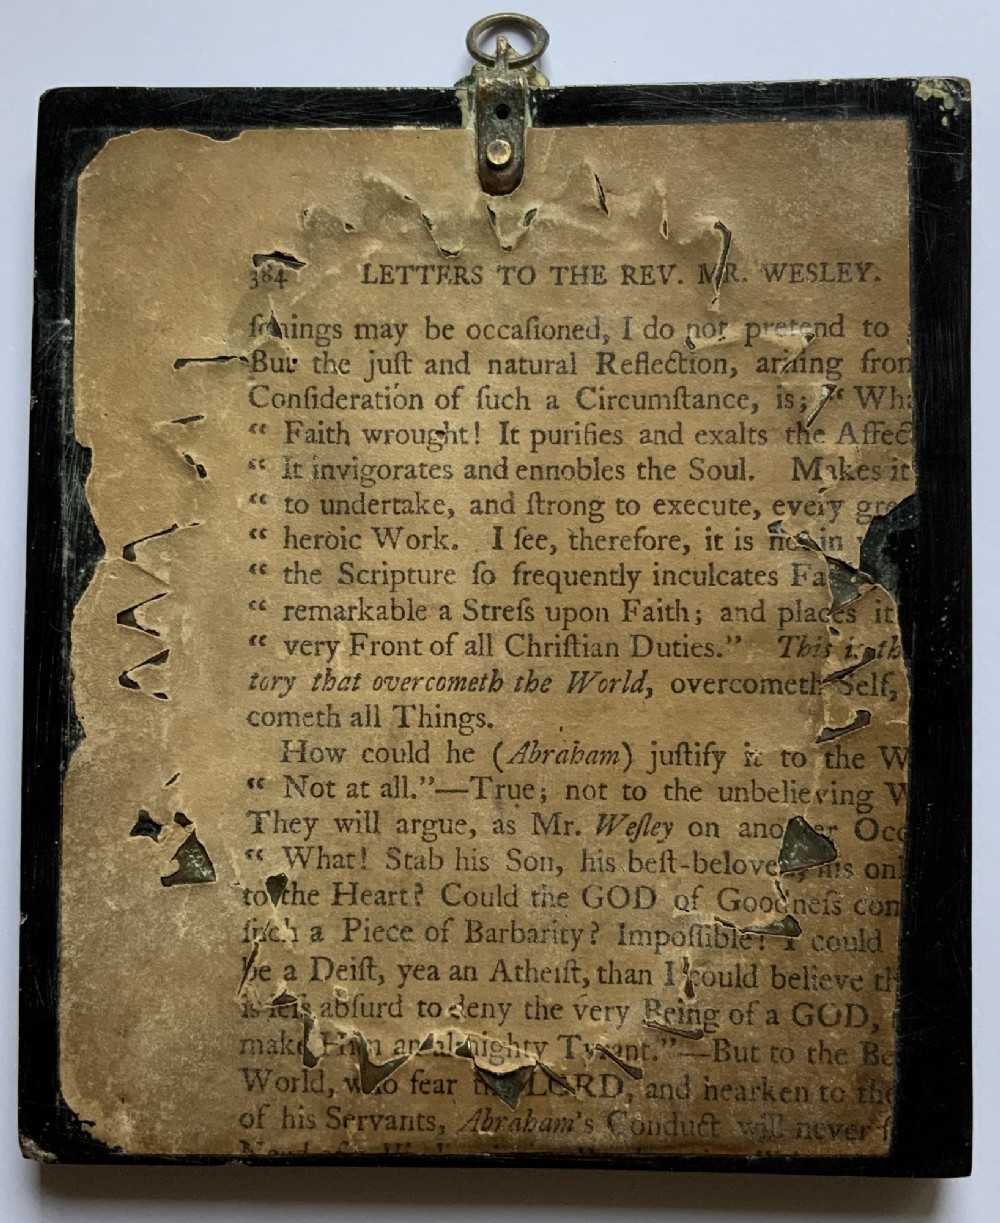 384 LETTERS TO THE REV. MR. WESLEY.
ſonings may be occaſioned, I do not pretend to
But the juſt and natural Reflection, ariſing from
Conſideration of ſuch a Circumſtance, is; “ Wha
“ Faith wrought! It purifies and exalts the Affect
“ It invigorates and ennobles the Soul. Makes it
“ to undertake, and ſtrong to execute, every gre
“ heroic Work. I ſee, therefore, it is not in
“ the Scripture ſo frequently inculcates Fa
“ remarkable a Streſs upon Faith; and places it
“ very Front of all Chriſtian Duties.” This is th
tory that overcometh the World, overcometh Self,
cometh all Things.
How could he (Abraham) juſtify it to the W
“ Not at all.”—True; not to the unbelieving W
They will argue, as Mr. Weſley on another Occ
“ What! Stab his Son, his beſt-beloved, his onl
to the Heart? Could the GOD of Goodneſs com
ſuch a Piece of Barbarity? Impoſſible! I could
be a Deiſt, yea an Atheiſt, than I could believe th
is leſs abſurd to deny the very Being of a GOD,
make Him an almighty Tyrant.”—But to the Be
World, who fear the LORD, and hearken to the
of his Servants, Abraham's Conduct will never